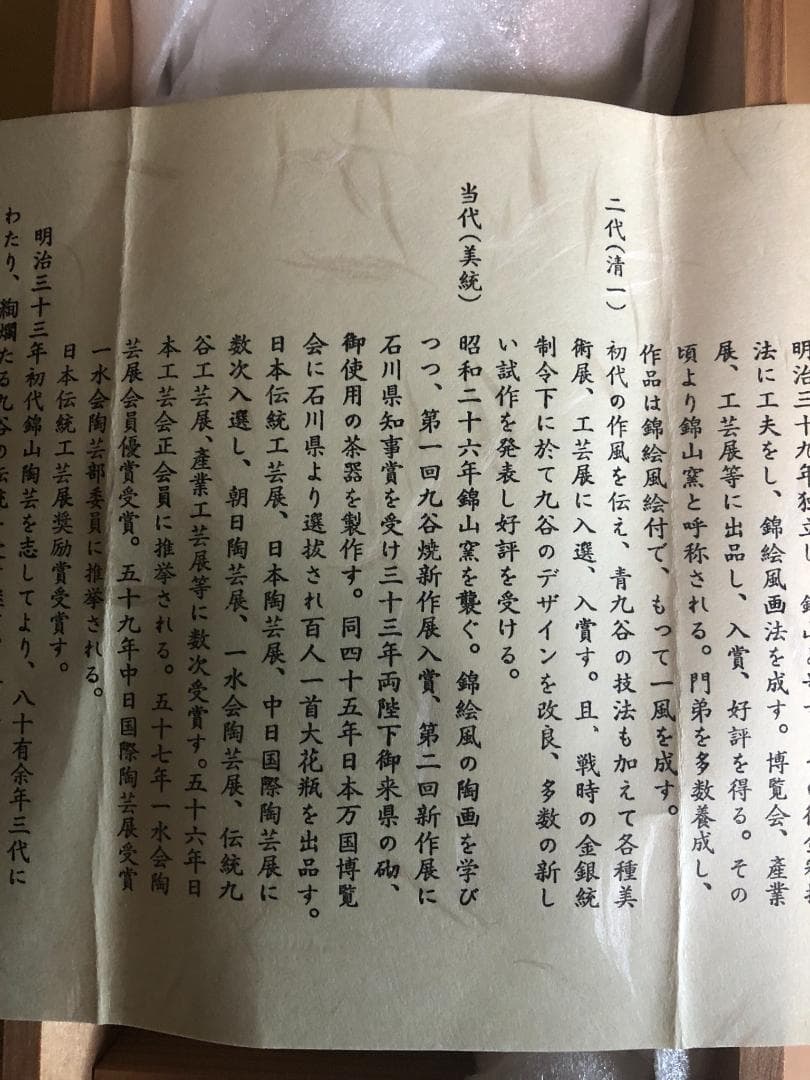 明治三十九年独立し、錦山
法に工夫をし、錦絵風画法を成す。博覧会、産業
展、工芸展等に出品し、入賞、好評を得る。その
頃より錦山窯と呼称される。門弟を多数養成し、
作品は錦絵風絵付で、もって一風を成す。
二代(清一)　初代の作風を伝え、青九谷の技法も加えて各種美
術展、工芸展に入選、入賞す。且、戦時の金銀統
制令下に於て九谷のデザインを改良、多数の新し
い試作を発表し好評を受ける。
当代(美統)　昭和二十六年錦山窯を襲ぐ。錦絵風の陶画を学び
つつ、第一回九谷焼新作展入賞、第二回新作展に
石川県知事賞を受け三十三年両陛下御来県の砌、
御使用の茶器を製作す。同四十五年日本万国博覧
会に石川県より選抜され百人一首大花瓶を出品す。
日本伝統工芸展、日本陶芸展、中日国際陶芸展に
数次入選し、朝日陶芸展、一水会陶芸展、伝統九
谷工芸展、産業工芸展等に数次受賞す。五十六年日
本工芸会正会員に推挙される。五十七年一水会陶
芸展会員優賞受賞。五十九年中日国際陶芸展受賞
一水会陶芸部委員に推挙される。
日本伝統工芸展奨励賞受賞す。
明治三十三年初代錦山陶芸を志してより、八十有余年三代に
わたり、絢爛たる九谷の伝統